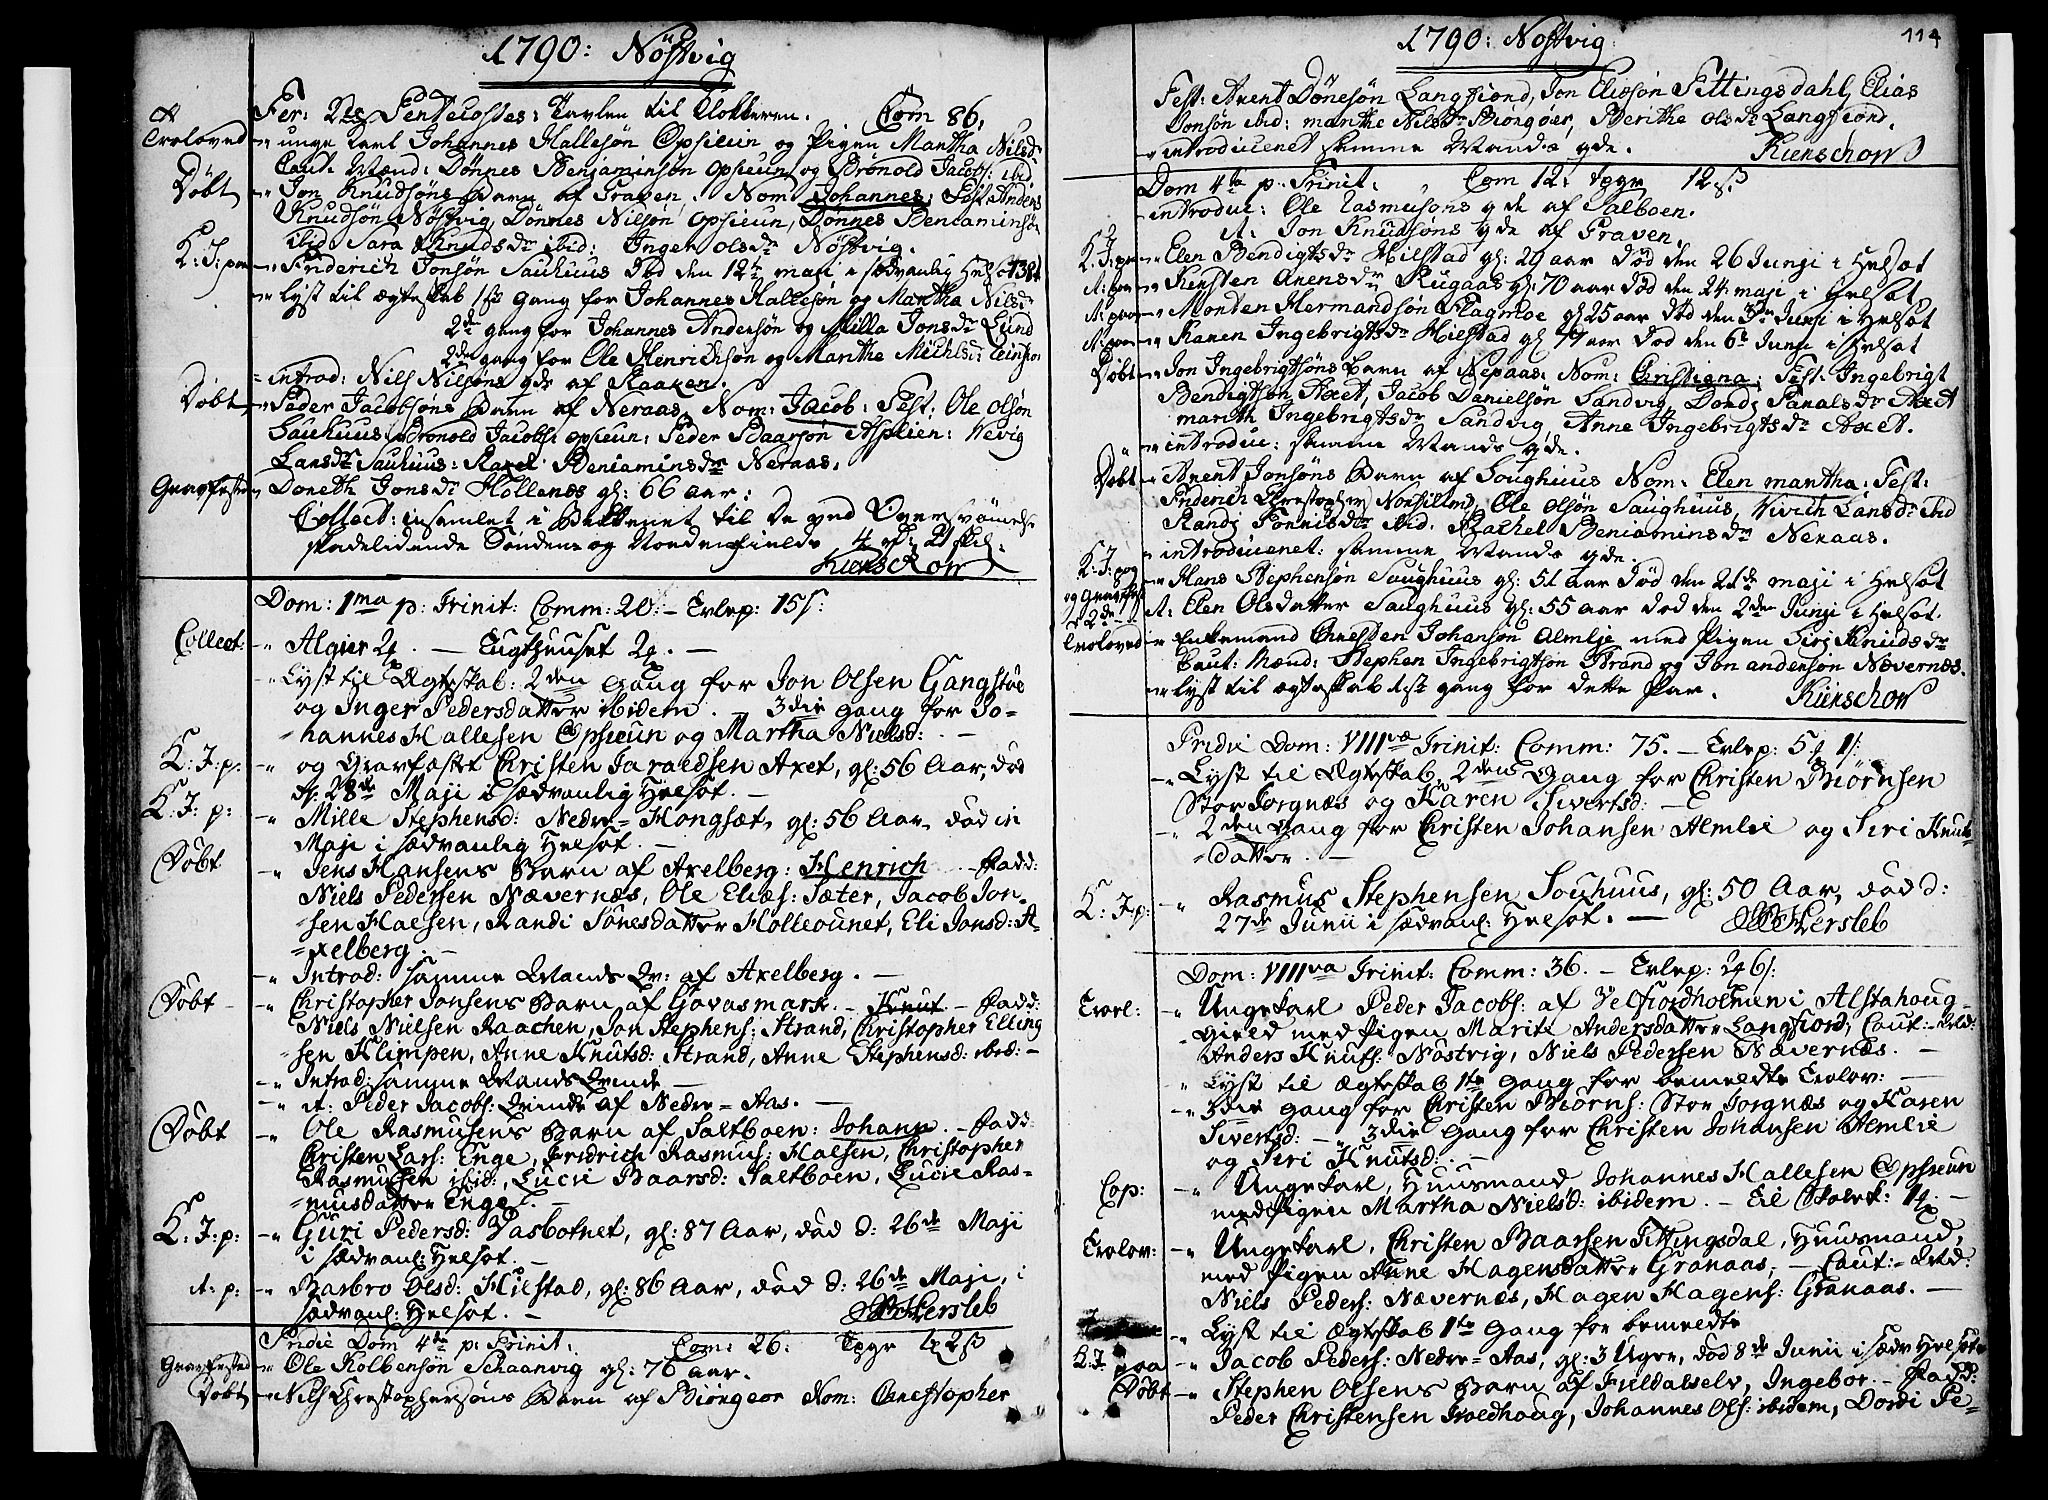 1790: Nöstvig
Fer: 2da Pentecostes: Tavlen til Klokkeren. Com 86,
Troloved
unge Karl Johannes Hallesön Opsieün og Pigen Martha Nilsdr
Caut: Mænd: Dönnes Benjaminsön Opsieün og Bronold Jacobs: ibid
Döbt
Jon Knudsöns Barn af Traven. Nom: Johannes: Test: Anders
Knudsön Nöstvig, Dönnes Nilsön Opsieün, Dönnes Beniaminsön
ibid, Sara Knudsdr ibid: Inger olsdr Nöstvig.
K: J: paa
Friderich Jonsön Sauhuus död den 12te maji i sædvanlig Helsot 38
Lyst til ægteskab 1ste gang for Johannes Hallesön og Martha Nilsdr
2den gang for Johannes Andersön og Milla Jonsdr Lund
2den gang for Ole Henrichsön og Marthe Michlsd:
introd: Nils Nilsöns qde af Raaken.
Döbt
Peder Jacobsöns Barn af Neraas, Nom: Jacob: Test: Ole Olsön
Sauhuus: Bronold Jacobs: opsieun: Peder Baarsön Asplien: Vevig
Larsdr Sauhuus: Raxel Beniaminsdr Neraas.
Gravfested
Doreth Jonsdr Hollenes gl: 66 aar:
Collect: insamlet i Bekkenet til De ved Oversvömelse
skadelidende Sönden og Nordenfields 4 rd: 21 skil:
Kierschow
Dom: 1ma p: Trinit: Comm: 20: – Tvlep: 15 s:
Collect:
Algier 2 – Tugthuuset 2 –
Lyst til Ægteskab: 2den Gang for Jon Olsen Gangstöe
og Inger Pedersdatter ibidem. – 3die Gang for Jo-
hannes Hallesen Opsieun og Martha Nielsd: –
K: J: p:
og Gravfæstet Christen Jaraldsen Axet, gl: 56 Aar, död
d: 28de Maji i sædvanlig Helsot. –
K: J: p:
Mille Stephensd: Nedre-Hongsæt, gl: 56 Aar, död in
Maji i sædvanlig Helsot. –
Döbt
Jens Hansens Barn af Axelberg: Henrich – Fadd:
Niels Pedersen Nævernæs, Ole Elias: Sæter, Jacob Jon-
sen Halsen, Randi Tönesdatter Holleounet, Eli Jonsd: A-
xelberg. –
Introd: samme Mands Qv: af Axelberg. –
Döbt
Christopher Jonsens Barn af Govasmark. – Knut – Fadd:
Niels Nielsen Raachen, Jon Stephens: Strand, Christopher Elling
sen Klimpen, Anne Knutsd: Strand, Anne Stephensd: ibid: –
Introd: samme Mands Qvinde –
it: Peder Jacobs: Qvinde af Nedre-Aas. –
Döbt
Ole Rasmusens Barn af Saltboen: Johann. – Fadd:
Christen Lars: Enge, Fridrich Rasmus: Halsen, Christopher
Rasmusen ibid:, Lucie Baarsd: Saltboen, Lucie Ras-
musdatter Enge. –
K: J: p:
Guri Pedersd: Vasbotnet, gl: 87 Aar, död d: 26de Maji
i sædvanl: Helsot. –
it: p:
Barbro Olsd: Hilstad, gl: 86 Aar, död d: 26de Maji, i
sædvanl: Helsot. –
Hersleb
Pridie Dom 4ta p: Trinit: Com: 26.
Gravfested
Ole Kolbensön Skaanvig gl: 76 aar.
Döbt
Nils Christophersöns Barn af Biöngeor Nom: Christopher
1790: Nostvig
114
Test: Arent Dönesön Langfiord, Jon Eliesön Fittingsdahl, Elias
Jonsön ibid: marthe Nilsdr Biöngöer, Berithe olsdr Langfiord.
introduceret samme Mands qde.
Kierschow
Dom 4ta p. Trinit: Com 12: 12 ß
introduc: Ole Rasmusöns qde af Salboen.
it: Jon Knudsöns qde af Traven.
K: J: paa
Elen Bendigtsdr Hilstad gl: 29 aar död den 26 Junji i Helsot
it: paa
Kersten Arensdr Rugaas gl: 70 aar död den 24 maji i Helsot
it: paa
Morten Hermandsön Flagmoe gl 25 aar död den 3de Junji i Helsot
it: paa
Karen Ingebrigtsdr Hielstad gl 77 aar död den 6te Junji i Helsot
Döbt
Jon Ingebrigtsöns Barn af Nepaas: Nom: Christiana: Test: Ingebrigt
Bendigtsön Axet, Jacob Danielsön Sandvig, Dordj Paralsdr Axet
marith Ingebrigtsdr Sandvig, Anne Ingebrigtsdr Axet.
introduc: samme Mands qde.
Döbt
Arent Jonsöns Barn af Soughuus Nom: Elen martha: Test:
Friderich Christophersen, Ole Olsön Saughuus, Vivich Larsdr ibid
Randj Tönnisdr ibid. Rachel Beniaminsdr Neraas.
introduceret: samme Mands qde.
K: J: paa
og Gravfest
Hans Stephensön Saughuus gl: 51 aar död den 21de maji i Helsot
it: Elen Olsdatter Saughuus gl: 55 aar död den 2den Junji i Helsot.
Troloved
Enkemand Christen Johansön Almlje med Pigen Sirj Knudsdr
Caut: Mænd: Stephen Ingebrigtsön Strand og Jon andersön Nævernes.
Lyst til ægteskab 1ste gang for dette Par.
Kierschow
Pridie Dom: VIIIvæ Trinit: Comm: 75. – Tvlep:
Lyst til Ægteskab, 2den Gang for Christen Biörnsen
Stor Torgnæs og Karen Sivertsd: –
2den Gang for Christen Johansen Almlie og Siri Knuts-
datter. –
K: J: p:
Rasmus Stephensen Souhuus, gl: 50 Aar, död d:
27de Junii i sædvanl: Helsot. –
Hersleb
Dom: VIIIva Trinit: Comm: 36. – Tvlep: 2 6 s:
Trol:
Ungekarl Peder Jacobs: af Velfiordholmen i Alstahoug-
Gield med Pigen Marite Andersdatter Langfiord, Caut:
Anders Knuts: Nöstvig, Niels Pedersen Nævernæs. –
Lyst til Ægteskab 1te Gang for bemeldte Trolov: –
3die Gang for Christen Biörns: Stor Torgnæs og Karen
Sivertsd: – 3die Gang for Christen Johansen Almlie
og Siri Knutsd: –
Cop:
Ungekarl, Huusmand Johannes Hallesen Opsieun
med Pigen Martha Nielsd: ibidem. –
Trolov:
Ungekarl, Christen Baarsen Fittingsdal, Huusmand,
med Pigen Anne Hagensdatter Granaas, – Caut:
Niels Peders: Nævernæs, Hagen Hagens: Granaas. –
Lyst til Ægteskab 1te Gang for bemeldte
K: J: paa
Jacob Peders: Nedre-Aas, gl: 3 Uger, död 8de Junii i sædv Helsot
Döbt
Stephen Olsens Barn af Fuldalselv, Ingebor – Fadd:
Peder Christensen Troldhoug, Johannes Ols: ibidem, Dordi Pe-